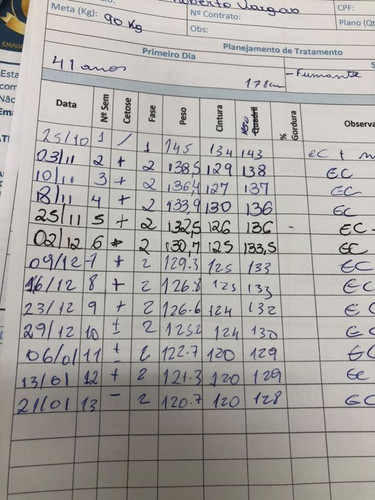 CPF:
Meta (Kg): 90 Kg Nº Contrato: Plano (Qt
Obs:
Primeiro Dia Planejamento de Tratamento
41 anos 178cm - Fumante
Data Nº Sem Cetose Fase Peso Cintura Quadril % Gordura Observa
25/10 1 / 1 145 134 143 EC +
03/11 2 + 2 138,5 129 138 EC
10/11 3 + 2 136,4 127 137 EC
18/11 4 + 2 133,9 130 136 EC
25/11 5 + 2 132,5 126 136 - EC
02/12 6 2 130,7 125 133,5 EC
09/12 7 + 2 129.3 125 133 EC
16/12 8 + 2 126.8 125 133 EC
23/12 9 + 2 126.6 124 132 EC
29/12 10 ± 2 125.2 124 130 EC
06/01 11 + 2 122.7 120 129 EC
13/01 12 + 2 121.3 120 129 EC
21/01 13 - 2 120.7 120 128 EC